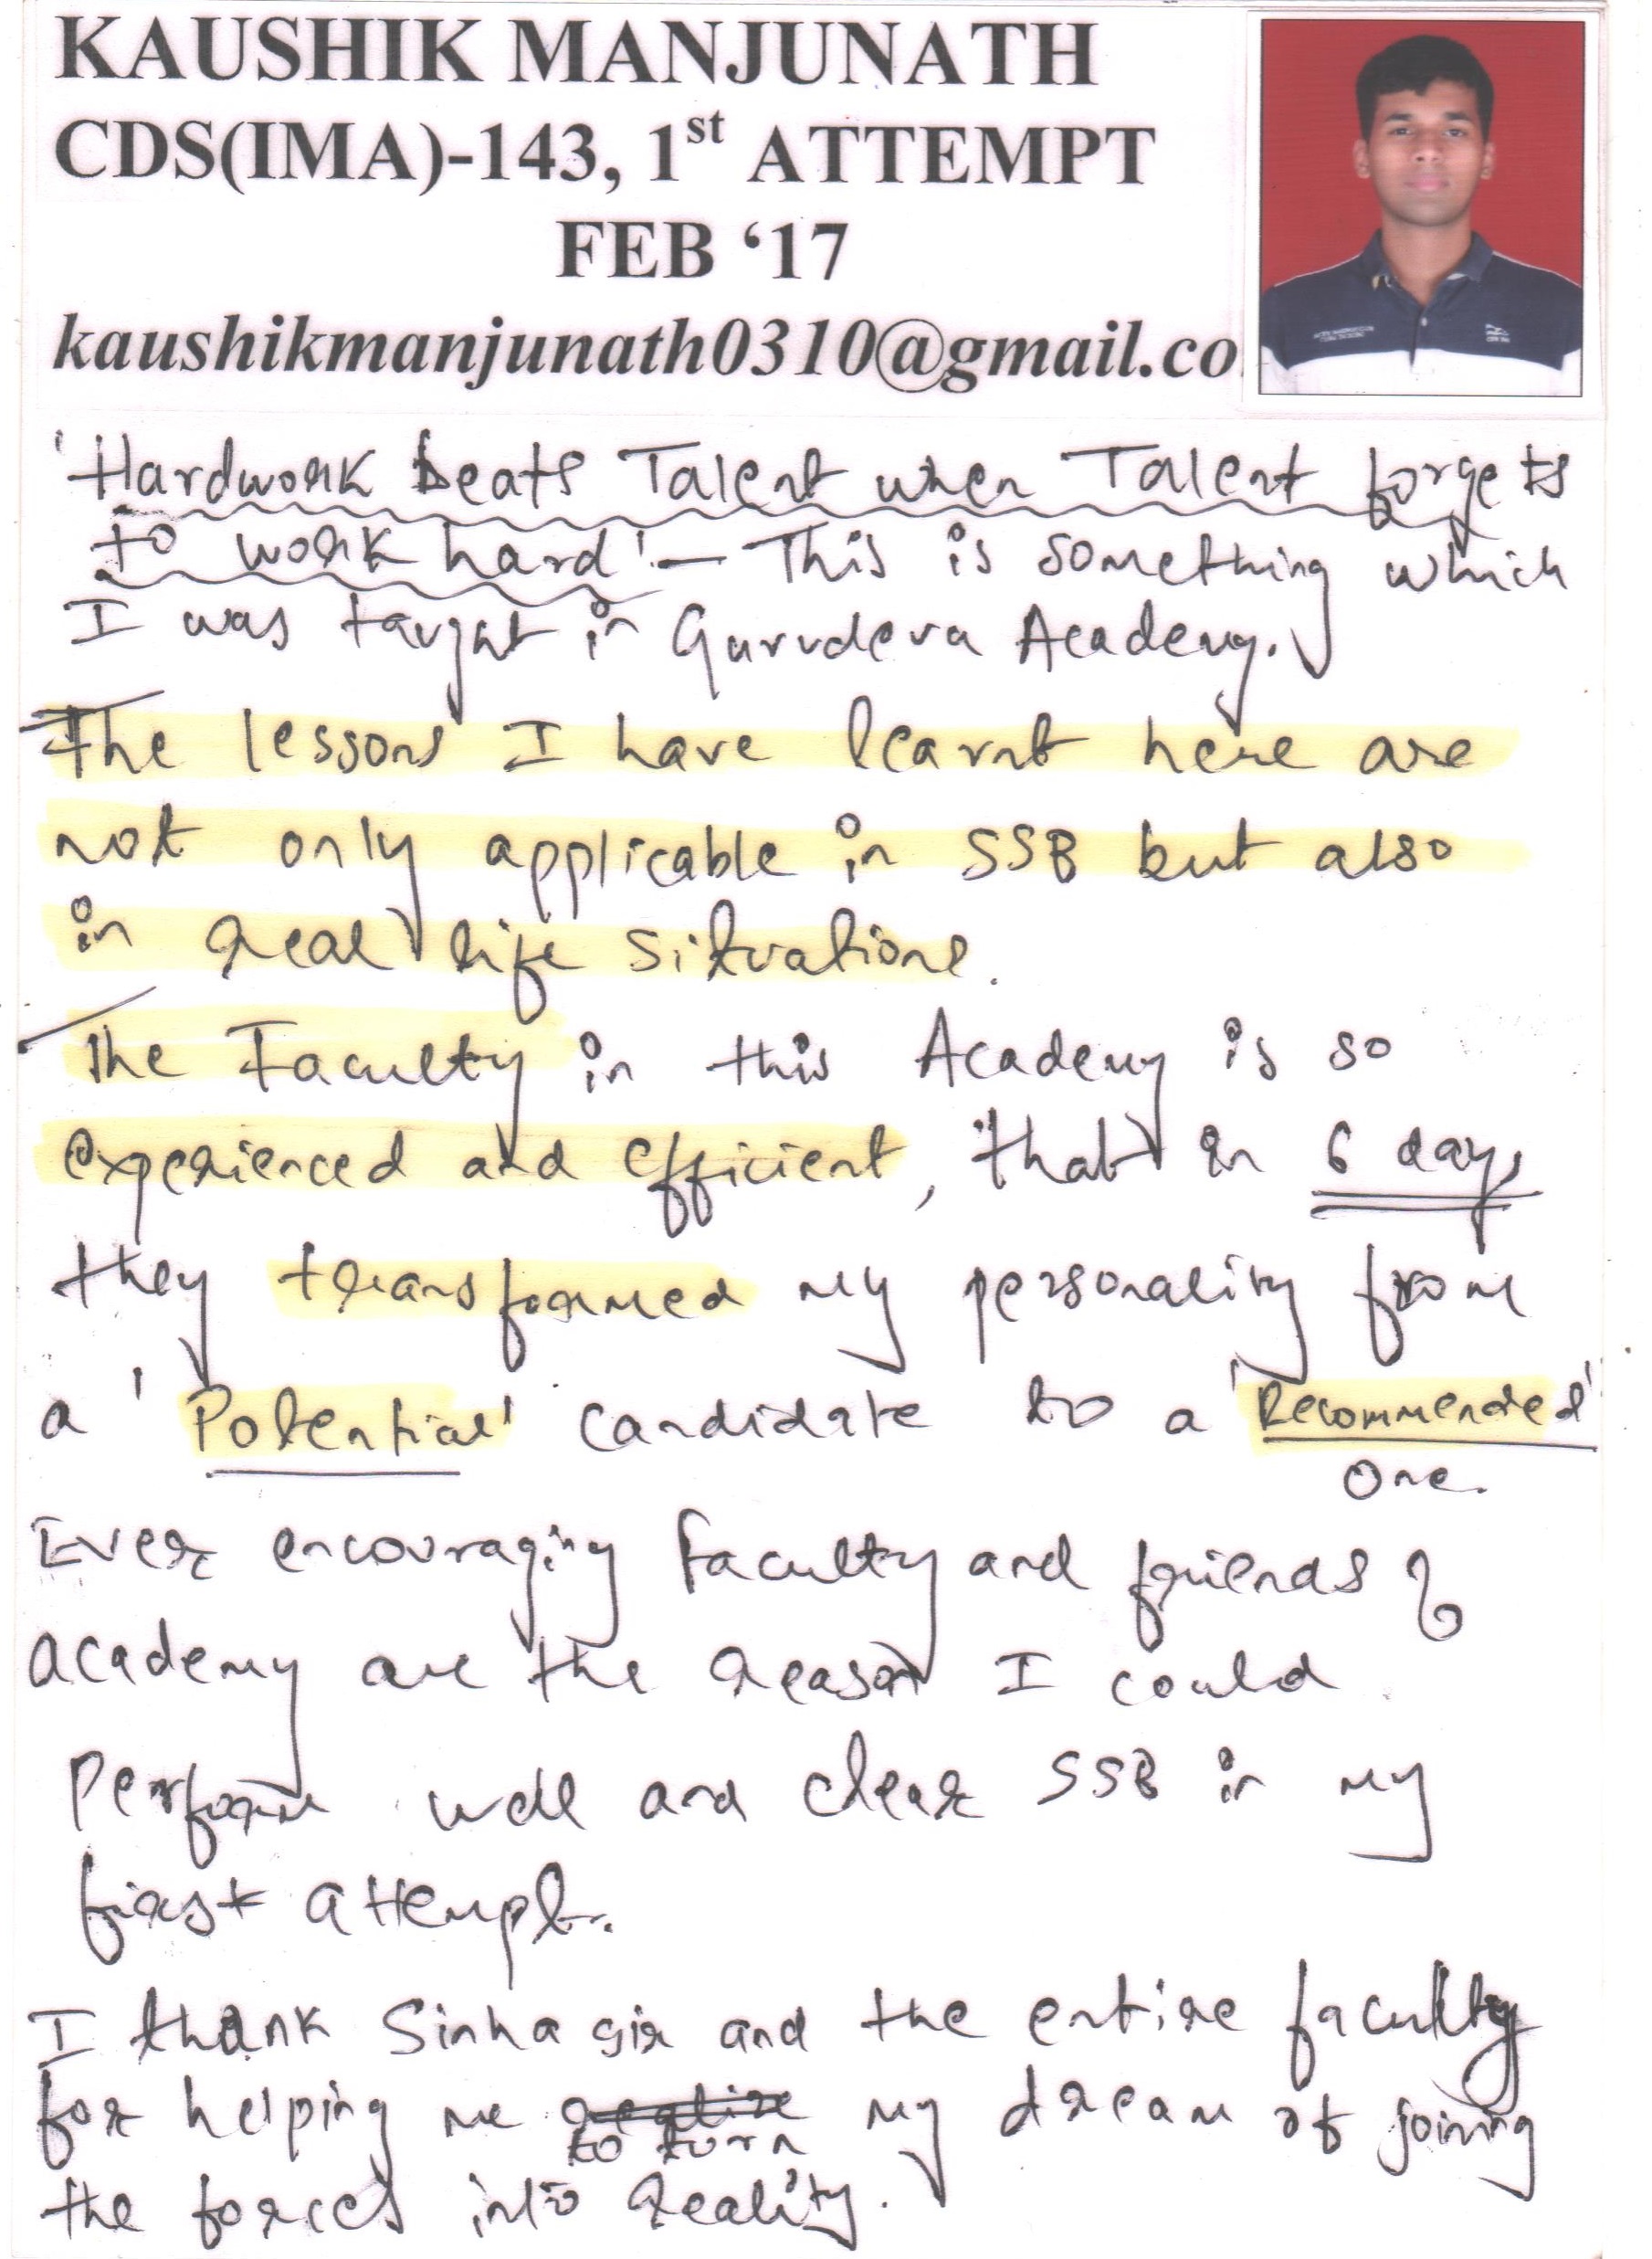 KAUSHIK MANJUNATH
CDS(IMA)-143, 1st ATTEMPT
FEB ‘17
kaushikmanjunath0310@gmail.co
'Hardwork beats Talent when Talent forgets
to work hard' – This is something which
I was taught in Gurudeva Academy.
The lessons I have learnt here are
not only applicable in SSB but also
in real life situations.
The Faculty in this Academy is so
experienced and efficient, that in 6 days
they transformed my personality from
a 'Potential' candidate to a 'Recommended'
One.
Ever encouraging faculty and friends of
academy are the reason I could
perform well and clear SSB in my
first attempt.
I thank Sinha sir and the entire faculty
for helping me realize my dream of joining
to turn
the forces into reality.